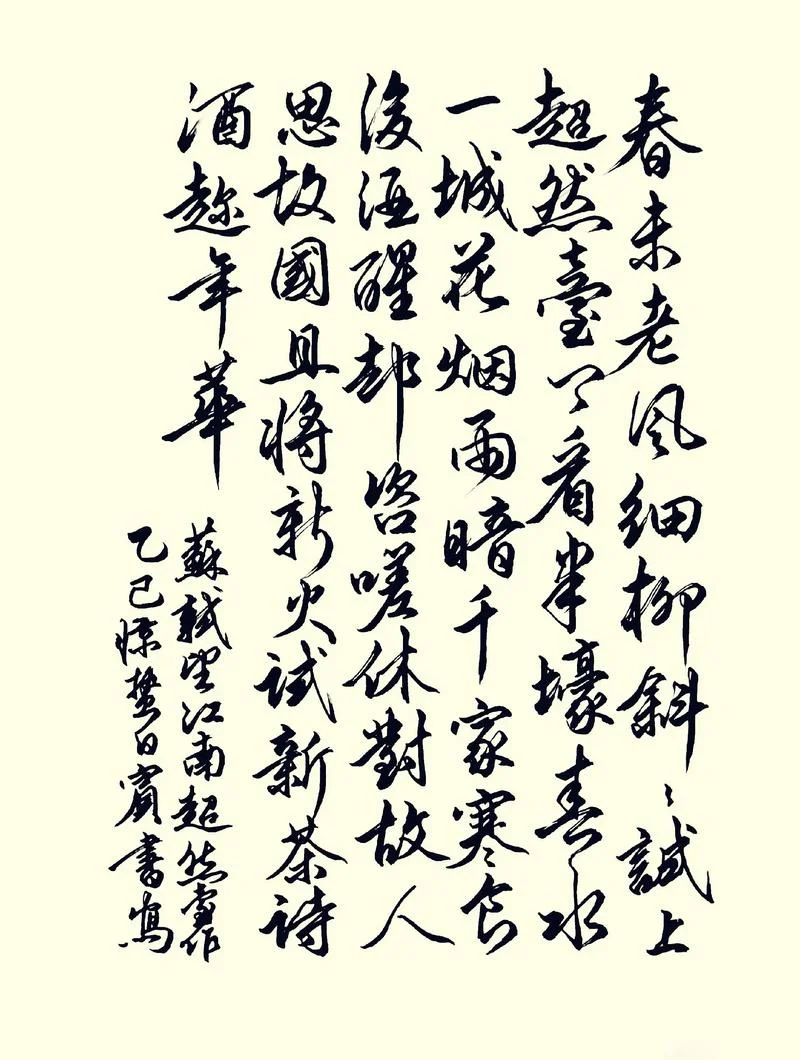 春未老風細柳斜〻誠上
超然臺看半壕春水
一城花烟雨暗千家寒食
後酒醒却咨嗟休對故人
思故國且將新火試新茶詩
酒趂年華
蘇軾望江南超然臺作
乙巳惊蟄日賓書寫